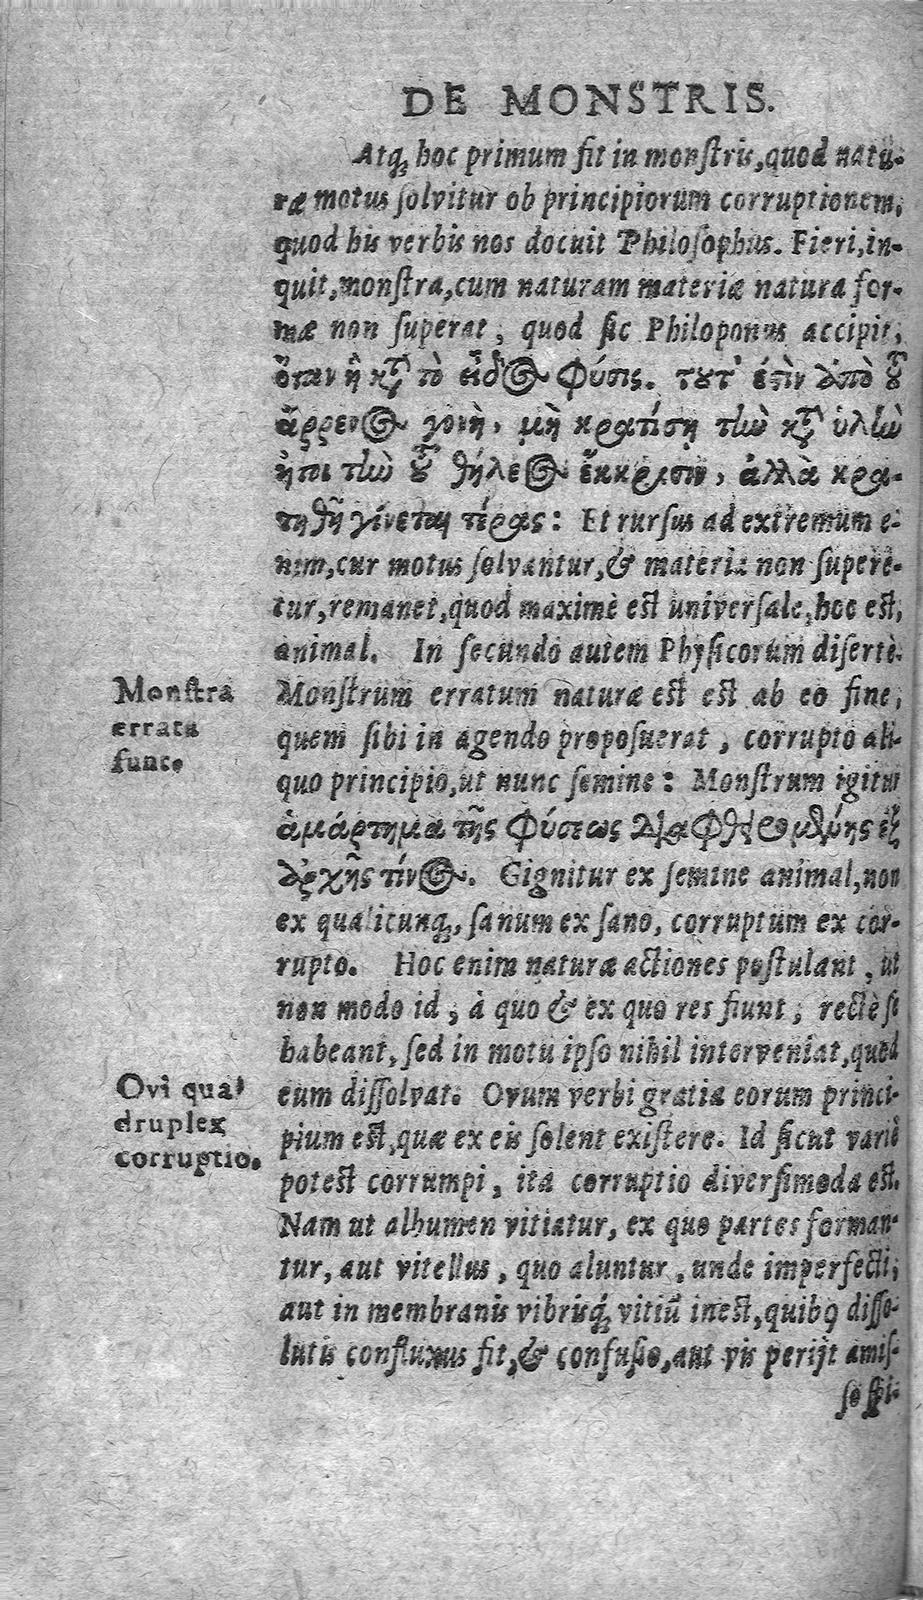 DE MONSTRIS.
Atq; hoc primum fit in monſtris, quod natu-
ræ motus ſolvitur ob principiorum corruptionem,
quod his verbis nos docuit Philoſophus. Fieri, in-
quit, monſtra, cum naturam materiæ natura for-
mæ non ſuperat, quod ſic Philoponus accipit,
ὅταν ἡ κτ̀ τὸ εἶδος φύσις. τουτ' ἐστὶν ἀπὸ τοῦ
ἄρρενος γονὴ, μὴ κρατήσῃ τὴν κτ̀ ὑλὴν
ἤτοι τὴν τοῦ θήλεος ἔκκρισιν, ἀλλὰ κρα-
τηθῇ γίνεται τέρας: Et rurſus ad extremum e-
nim, cur motus ſolvantur, & materia non ſupere-
tur, remanet, quod maximè eſt univerſale, hoc eſt,
animal. In ſecundo autem Phyſicorum diſertè.
Monſtra
errata
ſunt.
Monſtrum erratum naturæ eſt eſt ab eo fine,
quem ſibi in agendo propoſuerat, corrupto ali-
quo principio, ut nunc ſemine: Monſtrum igitur
ἁμάρτημα τῆς φύσεως διαφθειρομένης ἐξ
ἀρχῆς τίνος. Gignitur ex ſemine animal, non
ex qualicunq;, ſanum ex ſano, corruptum ex cor-
rupto. Hoc enim naturæ actiones poſtulant, ut
non modo id, à quo & ex quo res fiunt, rectè ſe
habeant, ſed in motu ipſo nihil interveniat, quod
Ovi qua-
druplex
corruptio.
eum diſſolvat. Ovum verbi gratia eorum princi-
pium eſt, quæ ex eis ſolent exiſtere. Id ſicut variè
poteſt corrumpi, ita corruptio diverſimoda eſt.
Nam ut albumen vitiatur, ex quo partes forman-
tur, aut vitellus, quo aluntur, unde imperfecti,
aut in membranis vibriſq; vitiū ineſt, quibꝰ diſſo-
lutis confluxus fit, & confuſio, aut vis perijt amiſ-
ſo ſpi-